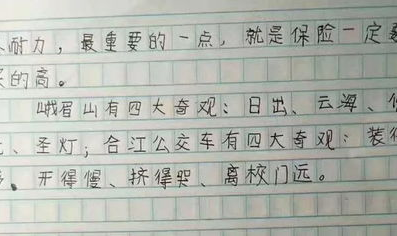 耐力，最重要的一点，就是保险一定
的高。
峨眉山有四大奇观：日出、云海、
、圣灯；合江公交车有四大奇观：装得
、开得慢、挤得哭、离校门远。